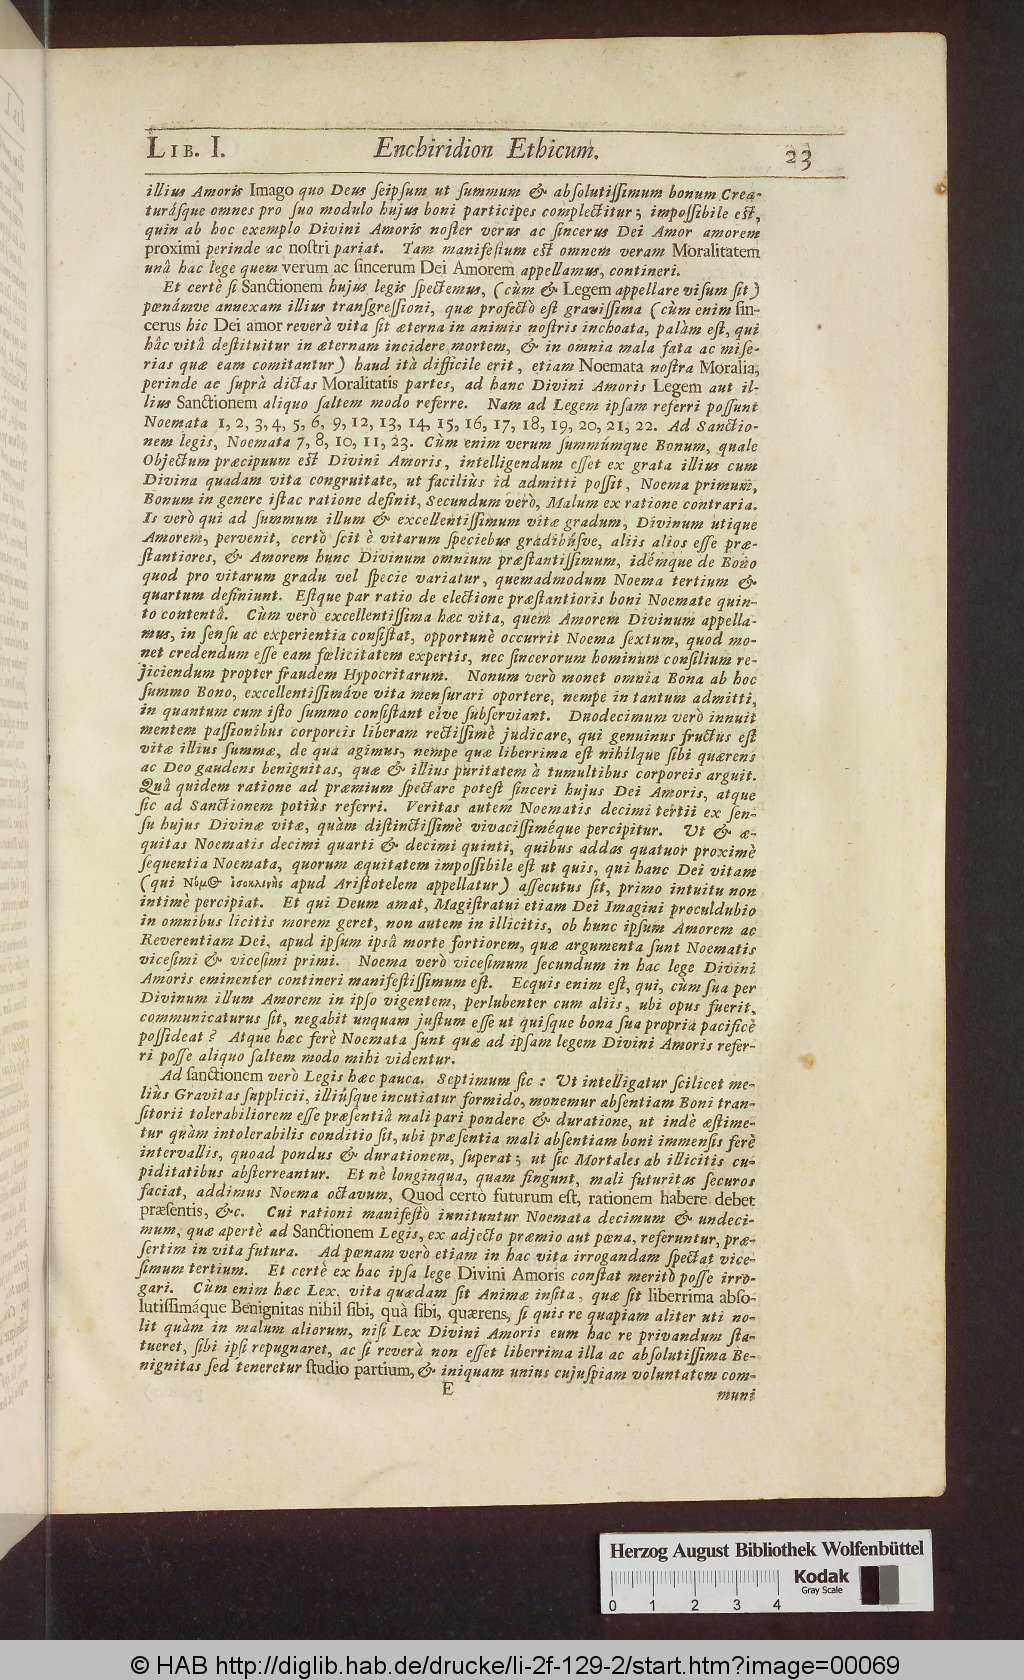 LIB. I. Enchiridion Ethicum. 23
illius Amoris Imago quo Deus ſeipſum ut ſummum & abſolutiſſimum bonum Crea-
turáſque omnes pro ſuo modulo hujus boni participes complectitur; impoſſibile eſt,
quin ab hoc exemplo Divini Amoris noſter verus ac ſincerus Dei Amor amorem
proximi perinde ac noſtri pariat. Tam manifeſtum eſt omnem veram Moralitatem
unâ hac lege quem verum ac ſincerum Dei Amorem appellamus, contineri.
Et certè ſi Sanctionem hujus legis ſpectemus, (cùm & Legem appellare viſum ſit)
pœnámve annexam illius tranſgreſſioni, quæ profectò eſt graviſſima (cùm enim ſin-
cerus hic Dei amor reverà vita ſit æterna in animis noſtris inchoata, palàm eſt, qui
hâc vitâ deſtituitur in æternam incidere mortem, & in omnia mala fata ac miſe-
rias quæ eam comitantur) haud ità difficile erit, etiam Noemata noſtra Moralia,
perinde ac ſuprà dictas Moralitatis partes, ad hanc Divini Amoris Legem aut il-
lius Sanctionem aliquo ſaltem modo referre. Nam ad Legem ipſam referri poſſunt
Noemata 1, 2, 3, 4, 5, 6, 9, 12, 13, 14, 15, 16, 17, 18, 19, 20, 21, 22. Ad Sanctio-
nem legis, Noemata 7, 8, 10, 11, 23. Cùm enim verum ſummúmque Bonum, quale
Objectum præcipuum eſt Divini Amoris, intelligendum eſſet ex grata illius cum
Divina quadam vita congruitate, ut faciliùs id admitti poſſit, Noema primum,
Bonum in genere iſtac ratione definit, Secundum verò, Malum ex ratione contraria.
Is verò qui ad ſummum illum & excellentiſſimum vitæ gradum, Divinum utique
Amorem, pervenit, certò ſcit è vitarum ſpeciebus gradibúſve, aliis alios eſſe præ-
ſtantiores, & Amorem hunc Divinum omnium præſtantiſſimum, idémque de Bono
quod pro vitarum gradu vel ſpecie variatur, quemadmodum Noema tertium &
quartum definiunt. Eſtque par ratio de electione præſtantioris boni Noemate quin-
to contentâ. Cùm verò excellentiſſima hæc vita, quem Amorem Divinum appella-
mus, in ſenſu ac experientia conſiſtat, opportunè occurrit Noema ſextum, quod mo-
net credendum eſſe eam fœlicitatem expertis, nec ſincerorum hominum conſilium re-
jiciendum propter fraudem Hypocritarum. Nonum verò monet omnia Bona ab hoc
ſummo Bono, excellentiſſimáve vita menſurari oportere, nempe in tantum admitti,
in quantum cum iſto ſummo conſiſtant eive ſubſerviant. Duodecimum verò innuit
mentem paſſionibus corporeis liberam rectiſſimè judicare, qui genuinus fructus eſt
vitæ illius ſummæ, de qua agimus, nempe quæ liberrima eſt nihilque ſibi quærens
ac Deo gaudens benignitas, quæ & illius puritatem à tumultibus corporeis arguit.
Quâ quidem ratione ad præmium ſpectare poteſt ſinceri hujus Dei Amoris, atque
ſic ad Sanctionem potiùs referri. Veritas autem Noematis decimi tertii ex ſen-
ſu hujus Divinæ vitæ, quàm diſtinctiſſimè vivaciſſiméque percipitur. Ut & æ-
quitas Noematis decimi quarti & decimi quinti, quibus addas quatuor proximè
ſequentia Noemata, quorum æquitatem impoſſibile eſt ut quis, qui hanc Dei vitam
(qui Νόμος ἰσοκλινὴς apud Ariſtotelem appellatur) aſſecutus ſit, primo intuitu non
intimè percipiat. Et qui Deum amat, Magiſtratui etiam Dei Imagini proculdubio
in omnibus licitis morem geret, non autem in illicitis, ob hunc ipſum Amorem ac
Reverentiam Dei, apud ipſum ipsâ morte fortiorem, quæ argumenta ſunt Noematis
viceſimi & viceſimi primi. Noema verò viceſimum ſecundum in hac lege Divini
Amoris eminenter contineri manifeſtiſſimum eſt. Ecquis enim eſt, qui, cùm ſua per
Divinum illum Amorem in ipſo vigentem, perlubenter cum aliis, ubi opus fuerit,
communicaturus ſit, negabit unquam juſtum eſſe ut quiſque bona ſua propria pacificè
poſſideat? Atque hæc ferè Noemata ſunt quæ ad ipſam legem Divini Amoris refer-
ri poſſe aliquo ſaltem modo mihi videntur.
Ad ſanctionem verò Legis hæc pauca. Septimum ſic: Ut intelligatur ſcilicet me-
liùs Gravitas ſupplicii, illiúſque incutiatur formido, monemur abſentiam Boni tran-
ſitorii tolerabiliorem eſſe præſentiâ mali pari pondere & duratione, ut indè æſtime-
tur quàm intolerabilis conditio ſit, ubi præſentia mali abſentiam boni immenſis ferè
intervallis, quoad pondus & durationem, ſuperat; ut ſic Mortales ab illicitis cu-
piditatibus abſterreantur. Et nè longinqua, quam fingunt, mali futuritas ſecuros
faciat, addimus Noema octavum, Quod certò futurum eſt, rationem habere debet
præſentis, &c. Cui rationi manifeſtò innituntur Noemata decimum & undeci-
mum, quæ apertè ad Sanctionem Legis, ex adjecto præmio aut pœna, referuntur, præ-
ſertim in vita futura. Ad pœnam verò etiam in hac vita irrogandam ſpectat vice-
ſimum tertium. Et certè ex hac ipſa lege Divini Amoris conſtat meritò poſſe irro-
gari. Cùm enim hæc Lex, vita quædam ſit Animæ inſita, quæ ſit liberrima abſo-
lutiſſimáque Benignitas nihil ſibi, quà ſibi, quærens, ſi quis re quapiam aliter uti no-
lit quàm in malum aliorum, niſi Lex Divini Amoris eum hac re privandum ſta-
tueret, ſibi ipſi repugnaret, ac ſi reverà non eſſet liberrima illa ac abſolutiſſima Be-
nignitas ſed teneretur ſtudio partium, & iniquam unius cujuſpiam voluntatem com-
E
muni
Herzog August Bibliothek Wolfenbüttel
Kodak
Gray Scale
0 1 2 3 4
© HAB http://diglib.hab.de/drucke/li-2f-129-2/start.htm?image=00069